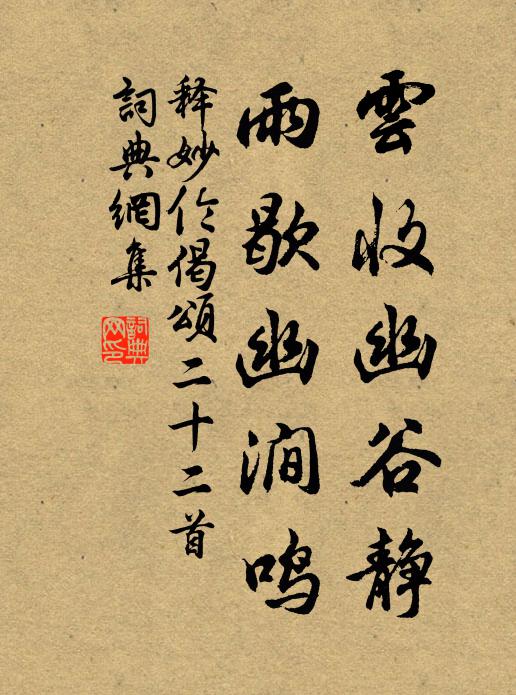 雲收幽谷静
雨歇幽澗鸣
释妙伦偈頌二十二首
詞典網集
詞典网印